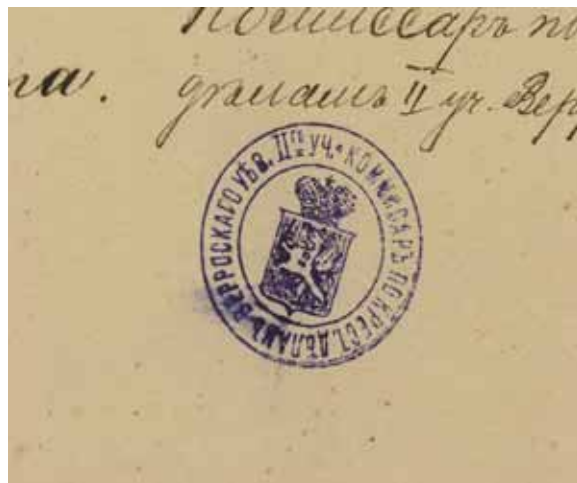 Комиссаръ по
та.
дѣламъ II уч. Верр
КОММИСАРЪ ПО КРЕСТ. ДѢЛАМЪ ВЕРРОСКАГО УѢЗ. IIГО УЧ.